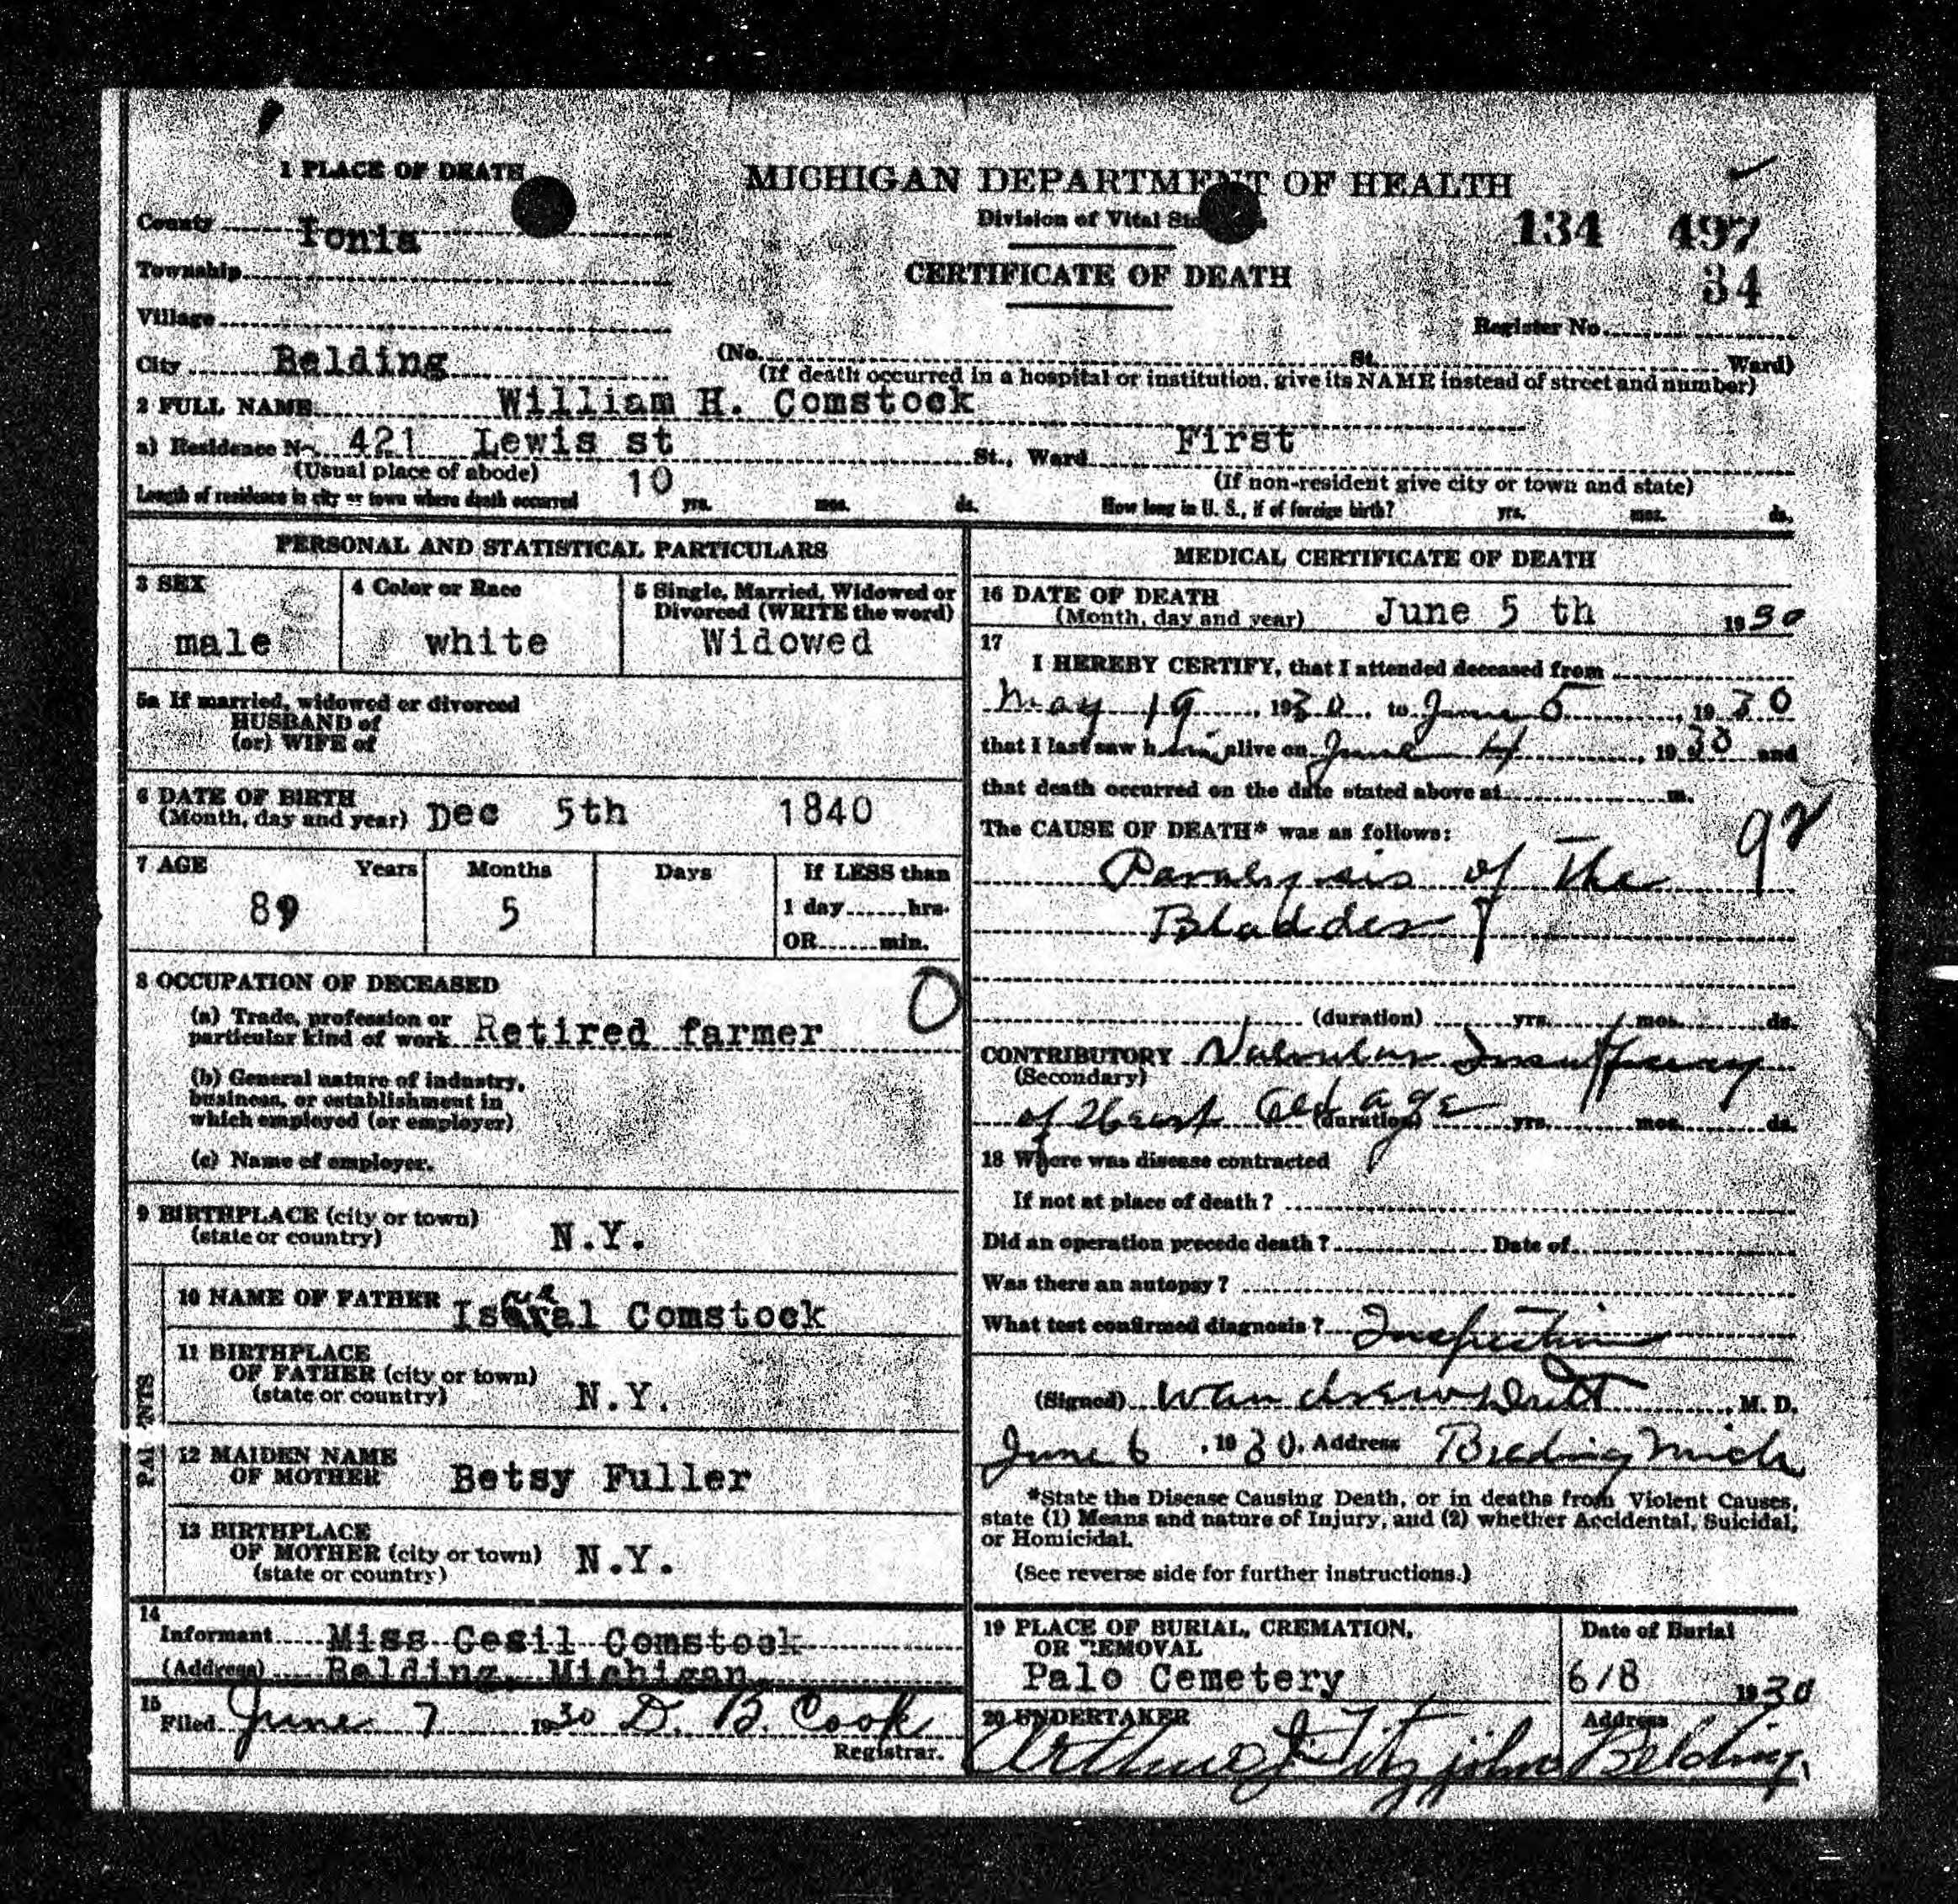 1 PLACE OF DEATH
MICHIGAN DEPARTMENT OF HEALTH
County Ionia
Division of Vital
134 497
Township
CERTIFICATE OF DEATH
34
Village
Register No.
City Belding (No. St. Ward)
(If death occurred in a hospital or institution, give its NAME instead of street and number)
2 FULL NAME William H. Comstock
a) Residence No. 421 Lewis st St., Ward First
(Usual place of abode) (If non-resident give city or town and state)
Length of residence in city or town where death occurred 10 yrs. mos. ds. How long in U. S., if of foreign birth? yrs. mos. ds.
PERSONAL AND STATISTICAL PARTICULARS
3 SEX
male
4 Color or Race
white
5 Single, Married, Widowed or
Divorced (WRITE the word)
Widowed
5a If married, widowed or divorced
HUSBAND of
(or) WIFE of
6 DATE OF BIRTH
(Month, day and year) Dec 5th 1840
7 AGE Years Months Days If LESS than
89 5 1 day hrs.
OR min.
8 OCCUPATION OF DECEASED 0
(a) Trade, profession or
particular kind of work Retired farmer
(b) General nature of industry,
business, or establishment in
which employed (or employer)
(c) Name of employer.
9 BIRTHPLACE (city or town)
(state or country) N.Y.
10 NAME OF FATHER Comstock
11 BIRTHPLACE
OF FATHER (city or town)
(state or country) N.Y.
12 MAIDEN NAME
OF MOTHER Betsy Fuller
13 BIRTHPLACE
OF MOTHER (city or town)
(state or country) N.Y.
14
Informant Miss Cecil Comstock
(Address) Belding, Michigan
15
Filed June 7 1930 D. B. Cook
Registrar.
MEDICAL CERTIFICATE OF DEATH
16 DATE OF DEATH
(Month, day and year) June 5 th 1930
17
I HEREBY CERTIFY, that I attended deceased from
May 19, 1930, to June 5, 1930
that I last saw him alive on June 4, 1930 and
that death occurred on the date stated above at m.
The CAUSE OF DEATH* was as follows:
Paralysis of The
Bladder
(duration) yrs. mos. ds.
CONTRIBUTORY Valvular Insufficiency
(Secondary)
of Heart Old age (duration) yrs. mos. ds.
18 Where was disease contracted
If not at place of death?
Did an operation precede death? Date of
Was there an autopsy?
What test confirmed diagnosis? Inspection
(Signed) M. D.
June 6, 1930, Address Belding Mich
*State the Disease Causing Death, or in deaths from Violent Causes,
state (1) Means and nature of Injury, and (2) whether Accidental, Suicidal,
or Homicidal.
(See reverse side for further instructions.)
19 PLACE OF BURIAL, CREMATION,
OR REMOVAL
Palo Cemetery
Date of Burial
6/8 1930
20 UNDERTAKER
Arthur J. Fitzjohn
Address
Belding.